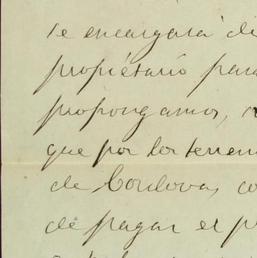 se encargará di
propiétario para
propongamos,
que por los terren
de Cordova, co
de pagar el p